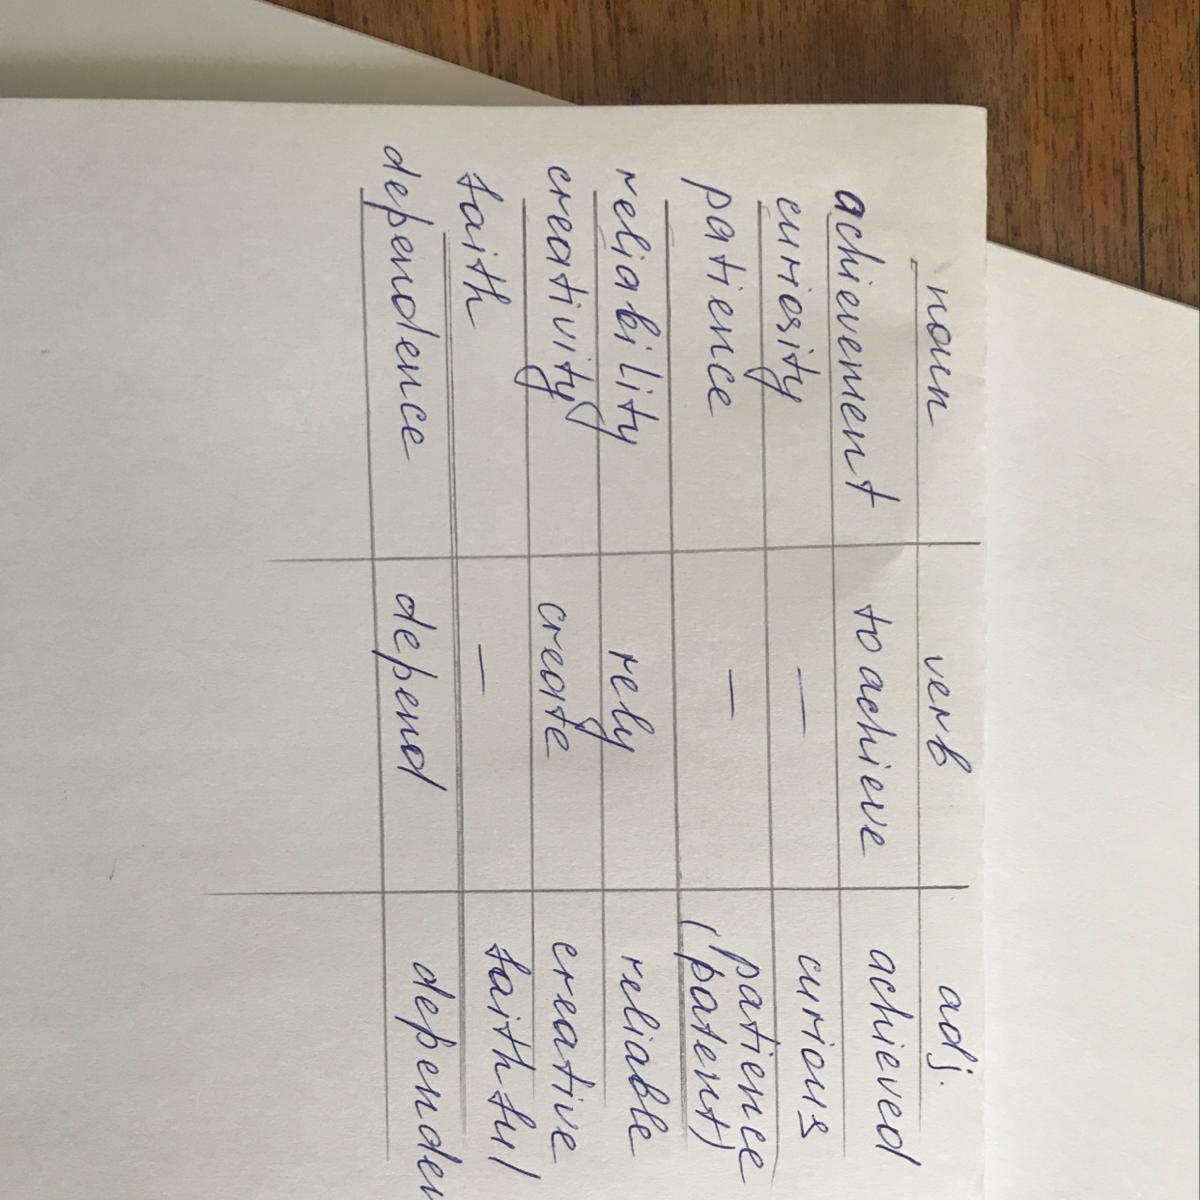 noun verb adj.
achievement to achieve achieved
curiosity — curious
patience — patience
(patent)
reliability rely reliable
creativity create creative
faith — faithful
dependence depend